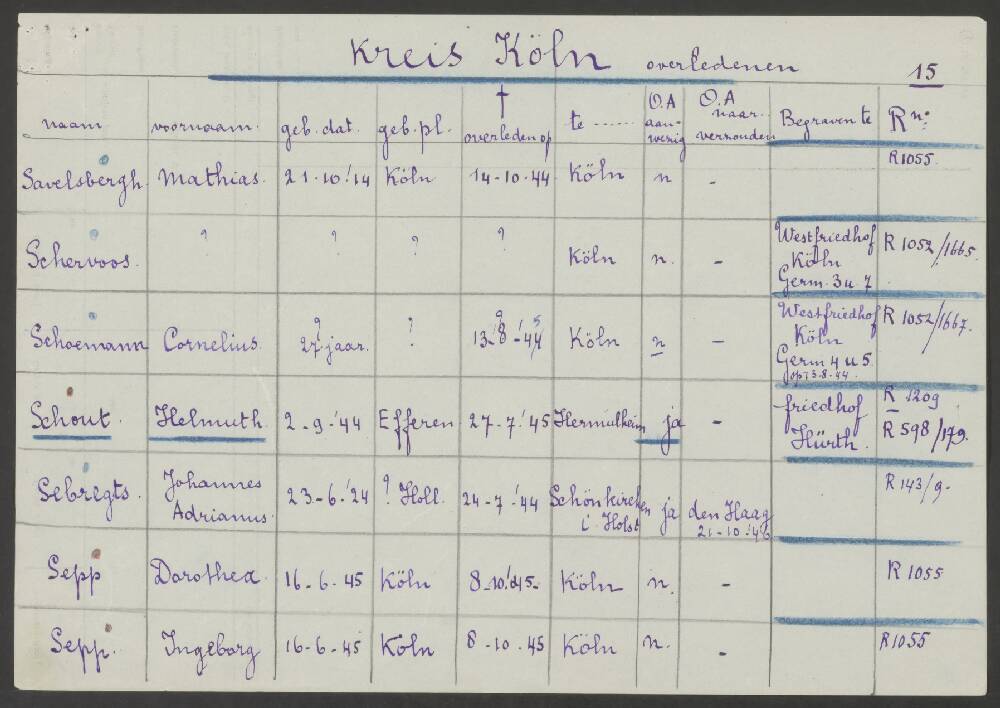 Kreis Köln overledenen 15
naam voornaam. geb. dat. geb. pl. † overleden op te ...... O.A aanwezig O.A naar. verzonden Begraven te R nr:
Savelsbergh Mathias. 21-10-'14 Köln 14-10-44 Köln n - R1055.
Schervoos. ? ? ? ? Köln n. - Westfriedhof Köln Germ. 3 u. 7 R 1052/1665.
Schoemann Cornelius. ? 27 jaar. ? ? Köln n - Westfriedhof Köln Germ 4 u 5 op 13-8-44. R 1052/1667.
Schout. Helmuth. 2-9-'44 Efferen 27-7-'45 Hermulheim ja - friedhof Hürth. R 1209 R 598/179.
Sebregts. Johannes Adrianus. 23-6-'24 ? Holl. 24-7-'44 Schönkirchen i. Holst ja den Haag 21-10-'46 R 143/9-
Sepp Dorothea. 16-6-45 Köln 8-10-'45- Köln n. - R 1055
Sepp. Ingeborg 16-6-45 Köln 8-10-45 Köln n. - R1055